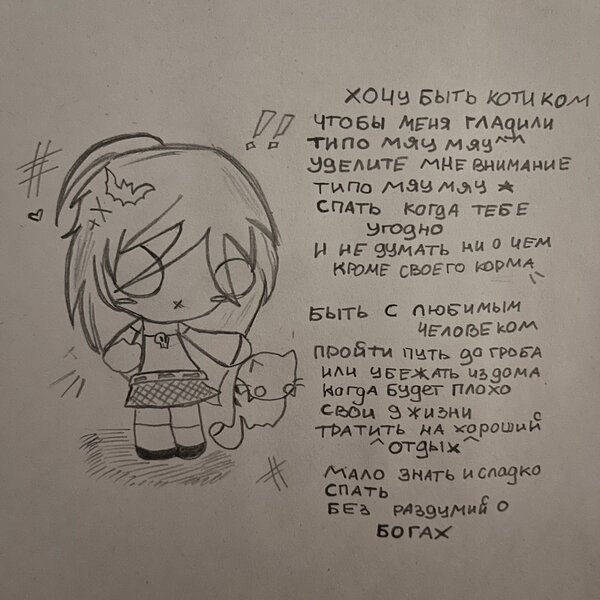 !!
ХОЧУ БЫТЬ КОТИКОМ
ЧТОБЫ МЕНЯ ГЛАДИЛИ
ТИПО МЯУ МЯУ^^
УДЕЛИТЕ МНЕ ВНИМАНИЕ
ТИПО МЯУ МЯУ ★
СПАТЬ КОГДА ТЕБЕ
УГОДНО
И НЕ ДУМАТЬ НИ О ЧЕМ
КРОМЕ СВОЕГО КОРМА
БЫТЬ С ЛЮБИМЫМ
ЧЕЛОВЕКОМ
ПРОЙТИ ПУТЬ ДО ГРОБА
ИЛИ УБЕЖАТЬ ИЗ ДОМА
КОГДА БУДЕТ ПЛОХО
СВОИ 9 ЖИЗНИ
ТРАТИТЬ НА ХОРОШИЙ
^ОТДЫХ^
МАЛО ЗНАТЬ И СЛАДКО
СПАТЬ
БЕЗ РАЗДУМИЙ О
БОГАХ